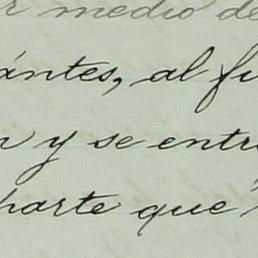 r medio de
antes, al fu
n y se entr
parte que